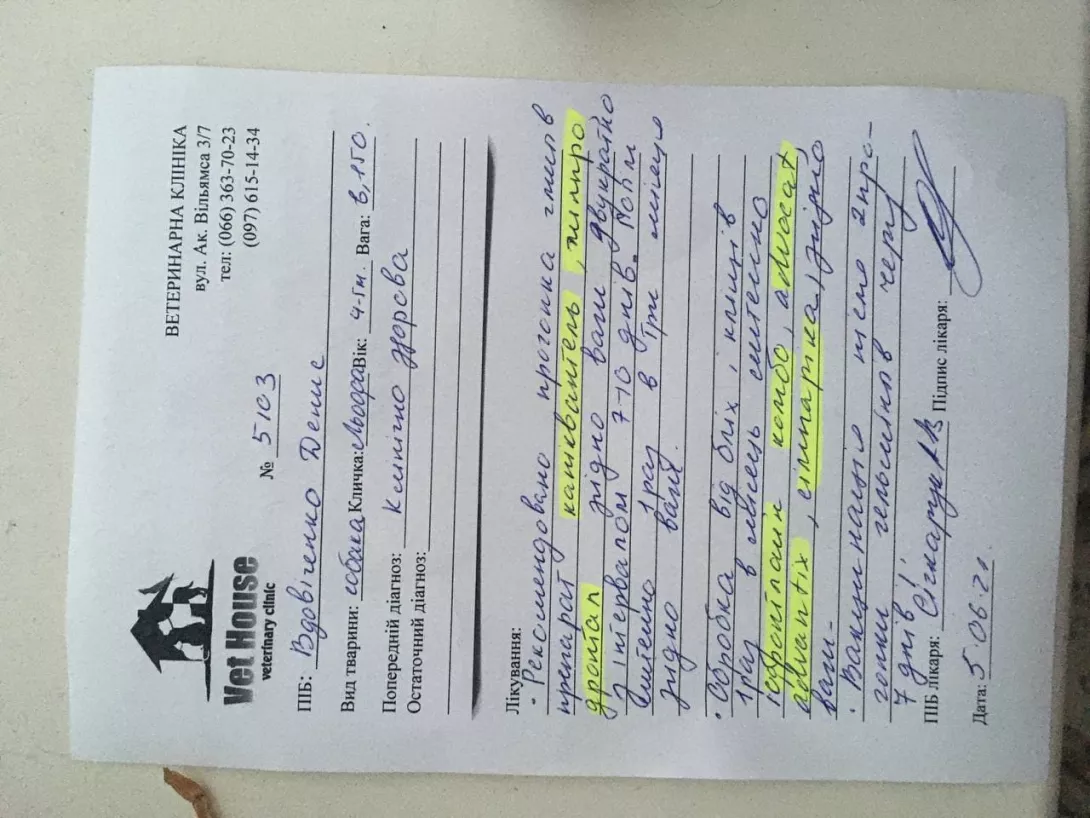 Vet House
veterinary clinic
ВЕТЕРИНАРНА КЛІНІКА
вул. Ак. Вільямса 3/7
тел: (066) 363-70-23
(097) 615-14-34
№ 5103
ПІБ: Вдовіченко Денис
Вид тварини: собака Кличка: Вік: 4-ім. Вага: 8,150.
Попередній діагноз: Клінічно здорова
Остаточний діагноз:
Лікування:
· Рекомендовано прогонка
препарат каніквантель, мілпро,
дронтал згідно ваги двукратно
з інтервалом 7-10 днів.
1 раз в три місяця
згідно ваги.
· Обробка від бліх, кліщів
1 раз в місяць
комбо, advocat,
advantix, сімпаріка, згідно
ваги.
· Вакцинацію 2 про-
гонки гельмінтів через
7 днів!
ПІБ лікаря: Підпис лікаря:
Дата: 5.06.21.